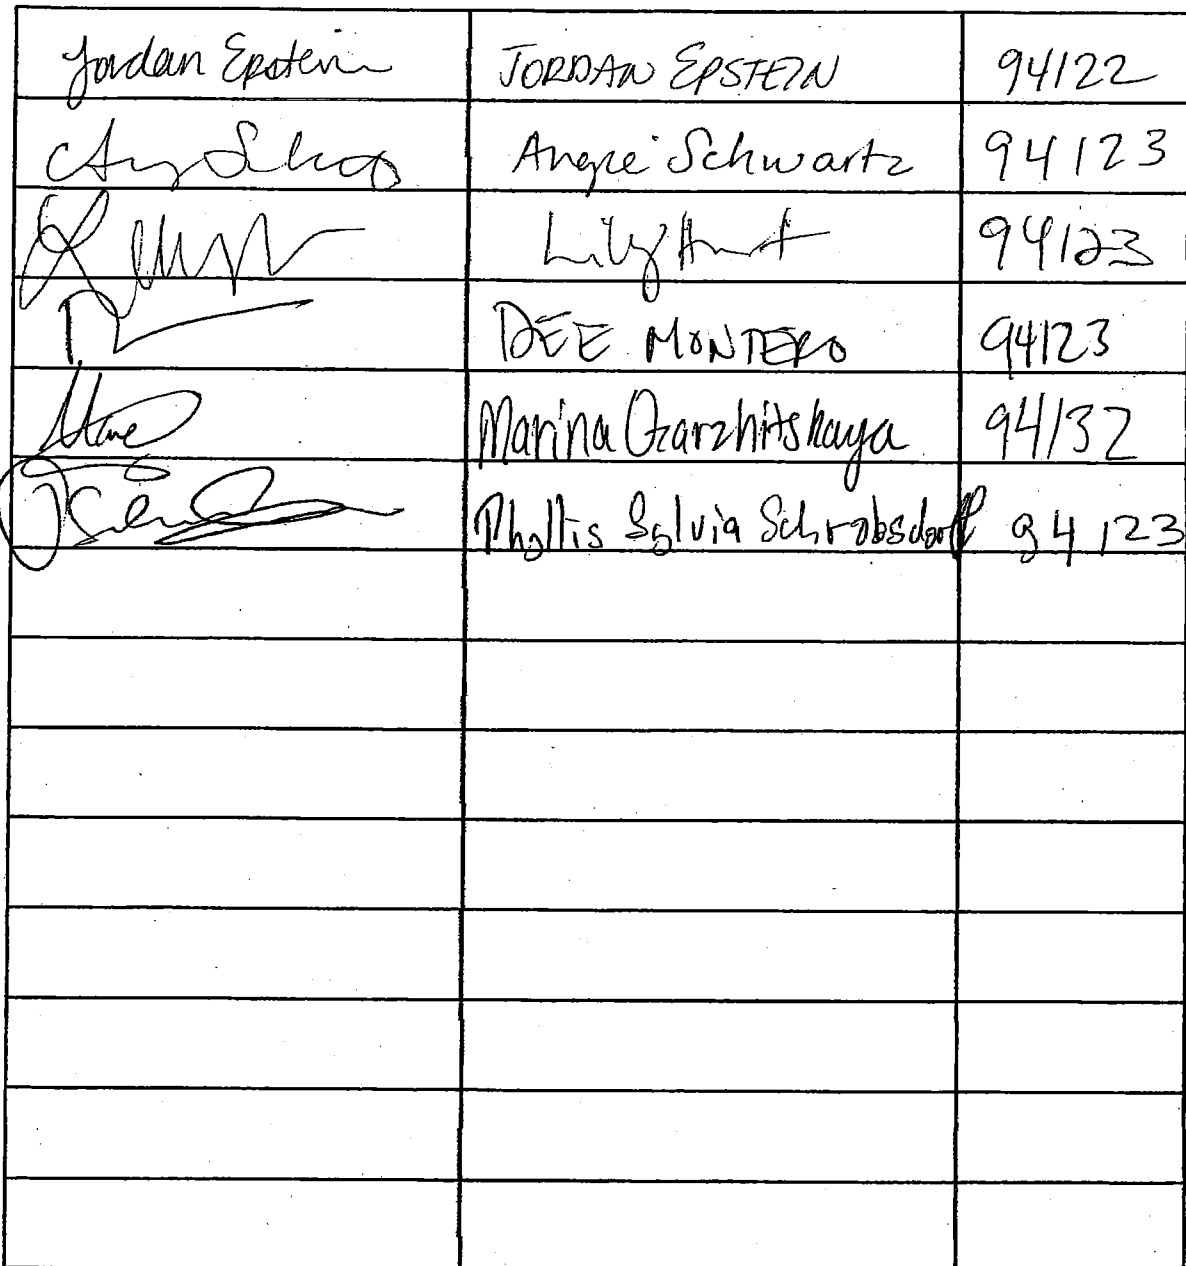 Jordan Epstein JORDAN EPSTEIN 94122
Angie Schwartz 94123
Lily Hunt 94123
DEE MONTERO 94123
Marina Gzarzhitskaya 94132
Phyllis Sylvia Schrobsdorff 94123